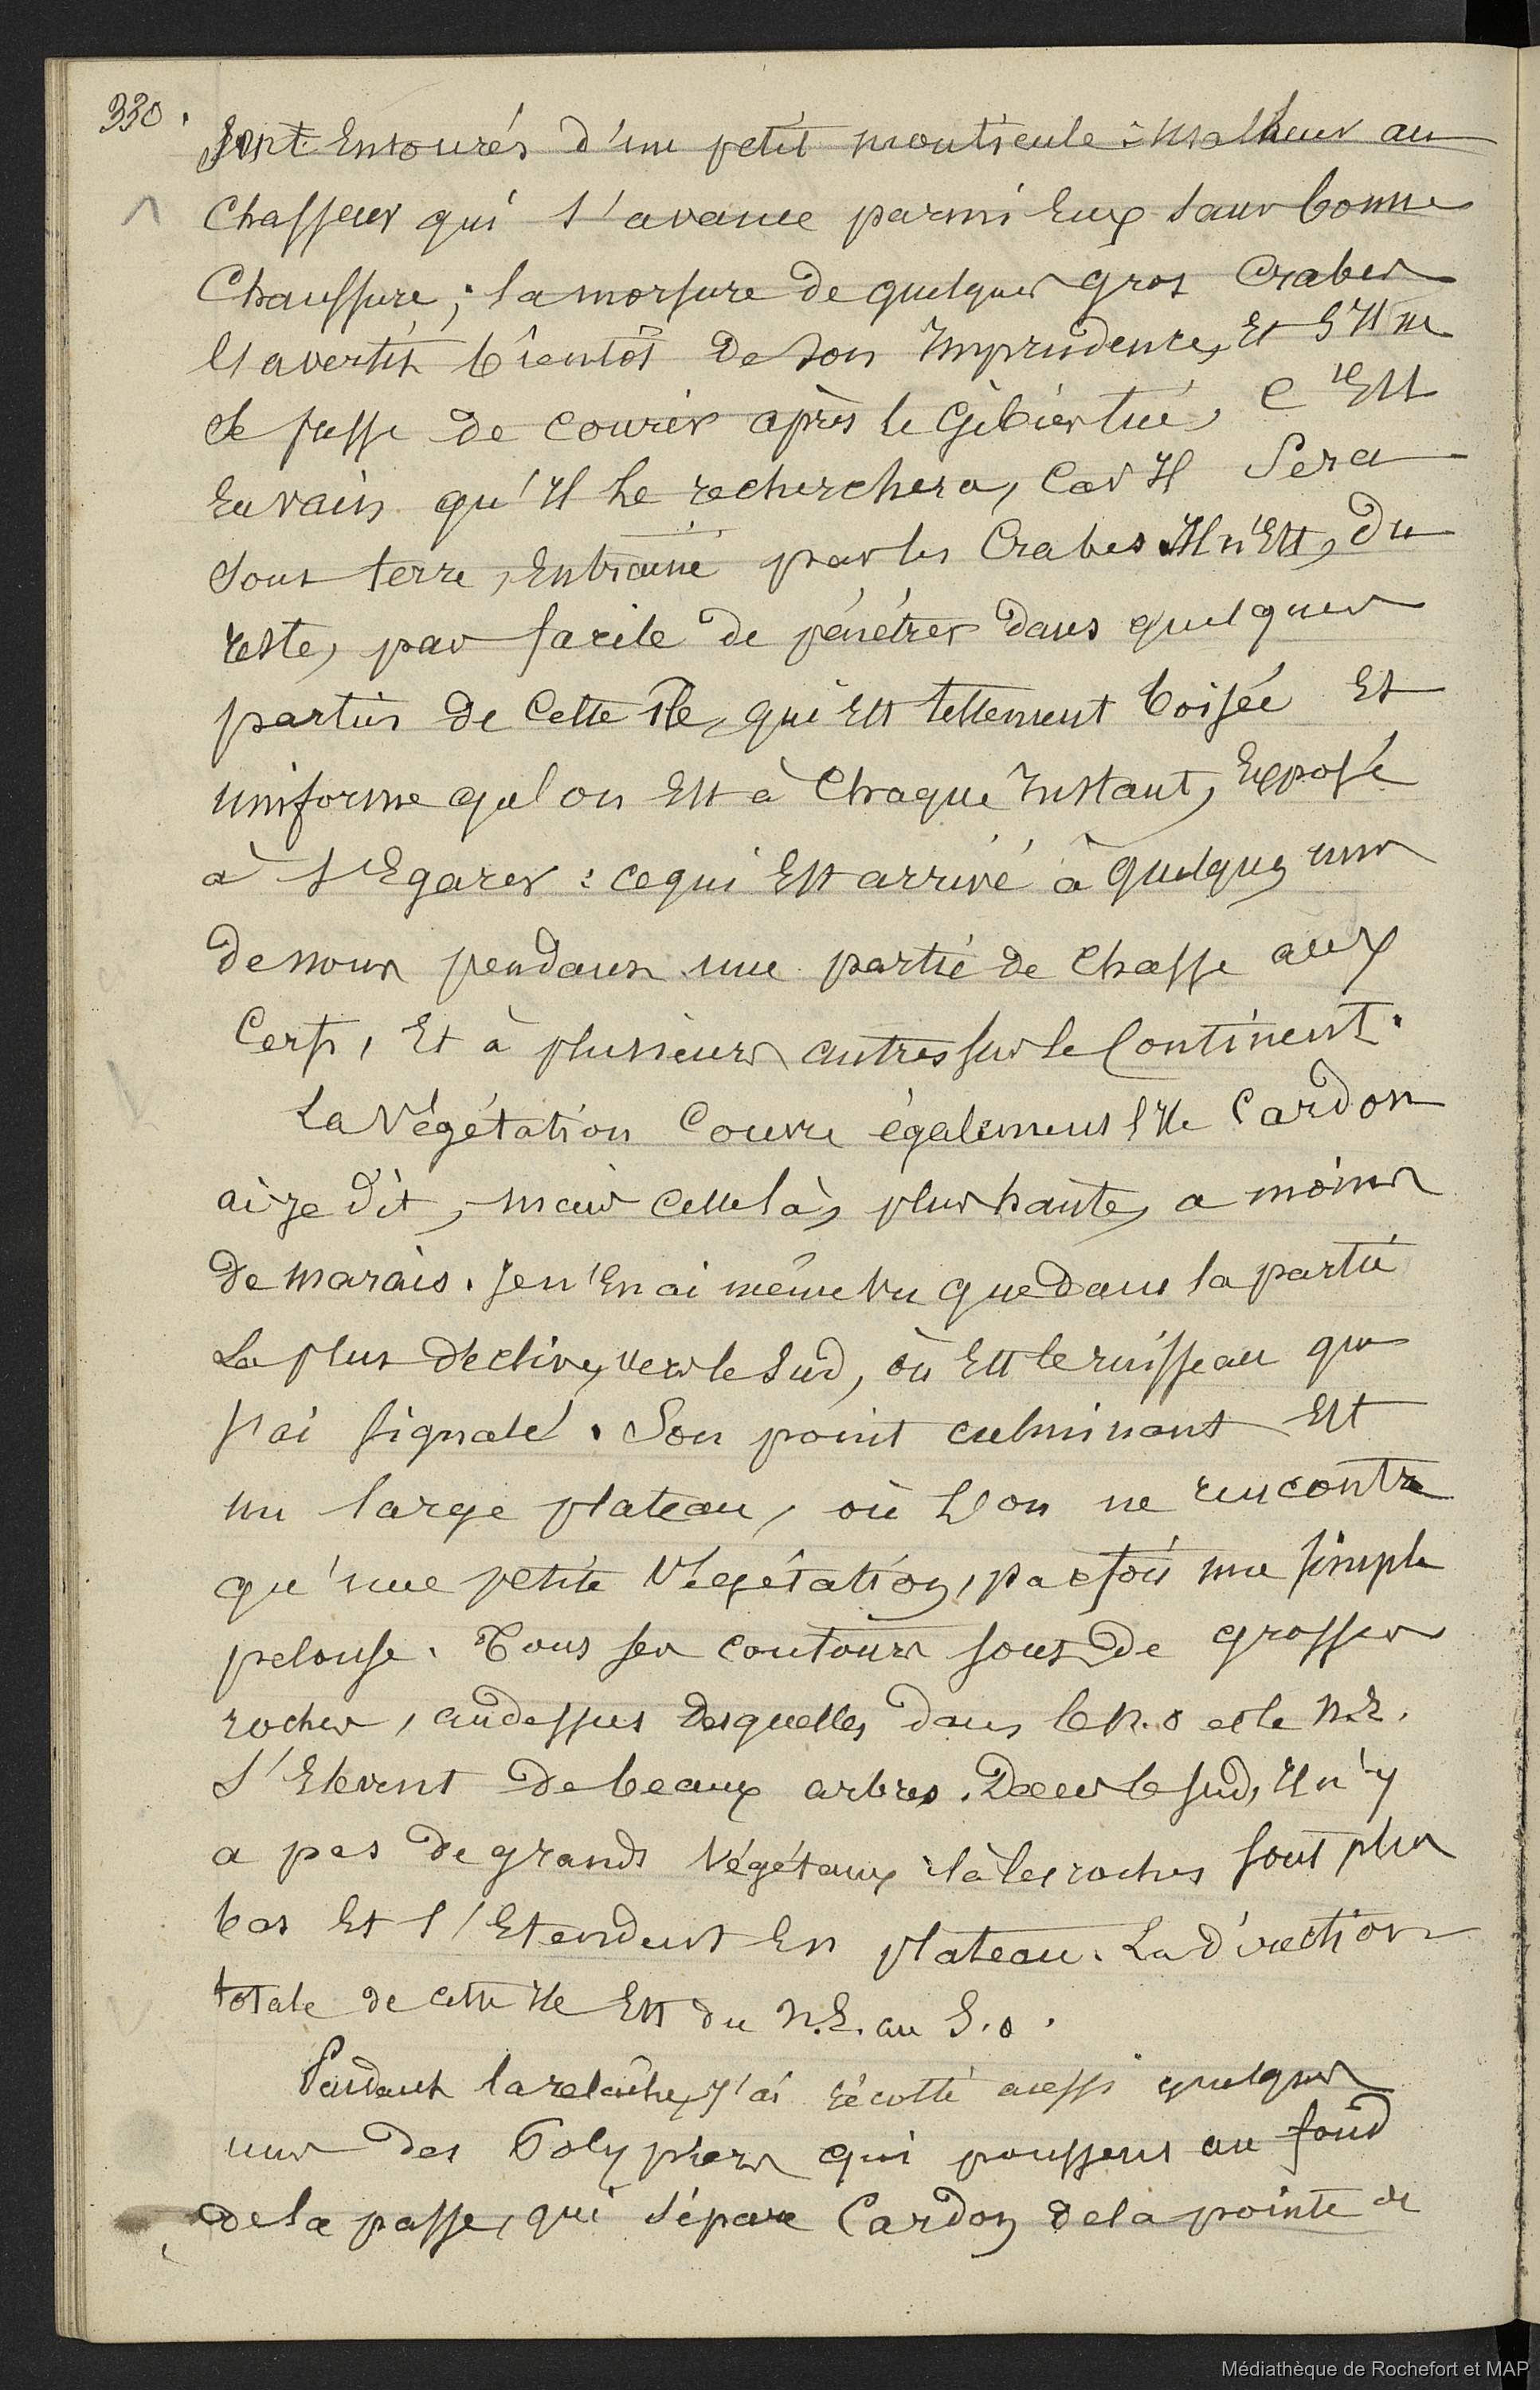 330.
sont Entourés d'un petit monticule : malheur au
Chasseur qui s'avance parmi Eux sans bonne
Chaussure ; la morsure de quelques gros Crabes
l'avertit bientôt de son Imprudence, Et s'Il ne
se presse de courir après le Gibier tué, c'Est
En vain qu'Il le recherchera, Car Il Sera
sous terre, Entrainé par les Crabes. Il n'Est, du
reste, pas facile de pénétrer dans quelques
parties de Cette île, qui Est tellement boisée Et
uniforme que l'on Est à Chaque Instant, Exposé
à s'Egarer : ce qui Est arrivé à quelques uns
de nous pendant une partie de Chasse aux
Cerfs, Et à plusieurs autres sur le Continent.
La Végétation Couvre également l'Ile Cardon
ai je dit, mais celle là, plus haute, a moins
de marais. Je n'En ai même vu que dans la partie
La plus déclive, vers le Sud, où Est le ruisseau que
j'ai signalé. Son point culminant Est
un large plateau, où L'on ne rencontre
qu'une petite Végétation, parfois une simple
pelouse. Tous ses contours sont de grosses
roches, au dessus desquelles dans le N.O et le N.E.
s'Elèvent de beaux arbres. Dans le sud, Il n'y
a pas de grands Végétaux : là les roches sont plus
bas Et s'Etendent En plateau. La direction
totale de cette Ile Est du N.E. au S.O.
Pendant la relâche, j'ai récolté aussi quelques
uns des Polypiers qui poussent au fond
de la passe, qui sépare Cardon de la pointe de
Médiathèque de Rochefort et MAP